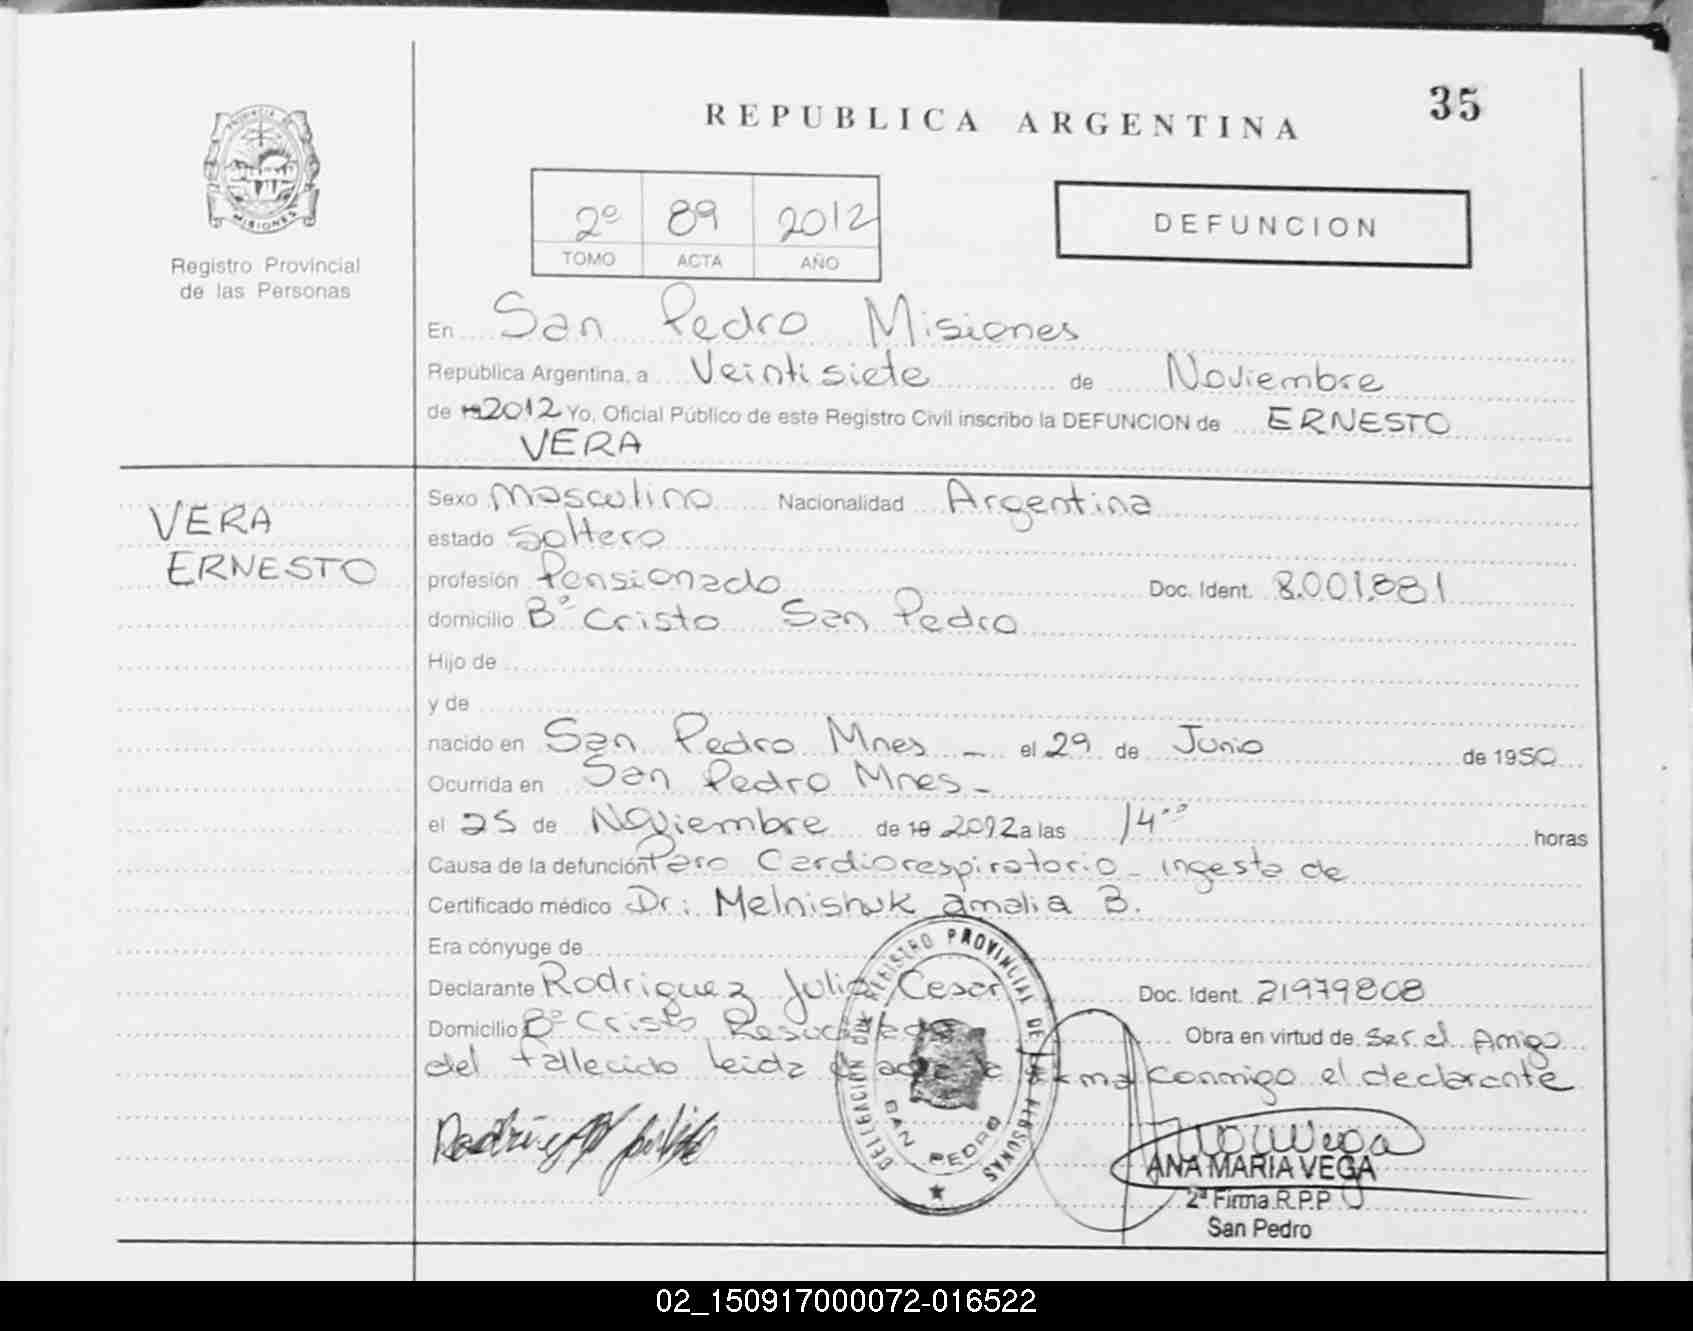 35
REPUBLICA ARGENTINA
PROVINCIA DE
MISIONES
Registro Provincial
de las Personas
2º 89 2012
TOMO ACTA AÑO
DEFUNCION
En San Pedro Misiones
República Argentina, a Veintisiete de Noviembre
de 19 2012 Yo, Oficial Público de este Registro Civil inscribo la DEFUNCION de ERNESTO
VERA
VERA
ERNESTO
Sexo Masculino Nacionalidad Argentina
estado Soltero
profesión Pensionado Doc. Ident. 8.001.881
domicilio Bº Cristo San Pedro
Hijo de
y de
nacido en San Pedro Mnes - el 29 de Junio de 1950
Ocurrida en San Pedro Mnes -
el 25 de Noviembre de 19 2012 a las 14ºº horas
Causa de la defunción Paro Cardiorespiratorio - ingesta de
Certificado médico Dr: Melnishuk Amalia B.
Era cónyuge de
Declarante Rodriguez Julio Cesar Doc. Ident. 21979808
Domicilio Bº Cristo Resucitado Obra en virtud de Ser el Amigo
del fallecido leida el acta la firma conmigo el declarante
DELEGACION DEL REGISTRO PROVINCIAL DE LAS PERSONAS
SAN PEDRO
ANA MARIA VEGA
2ª Firma R.P.P
San Pedro
02_150917000072-016522